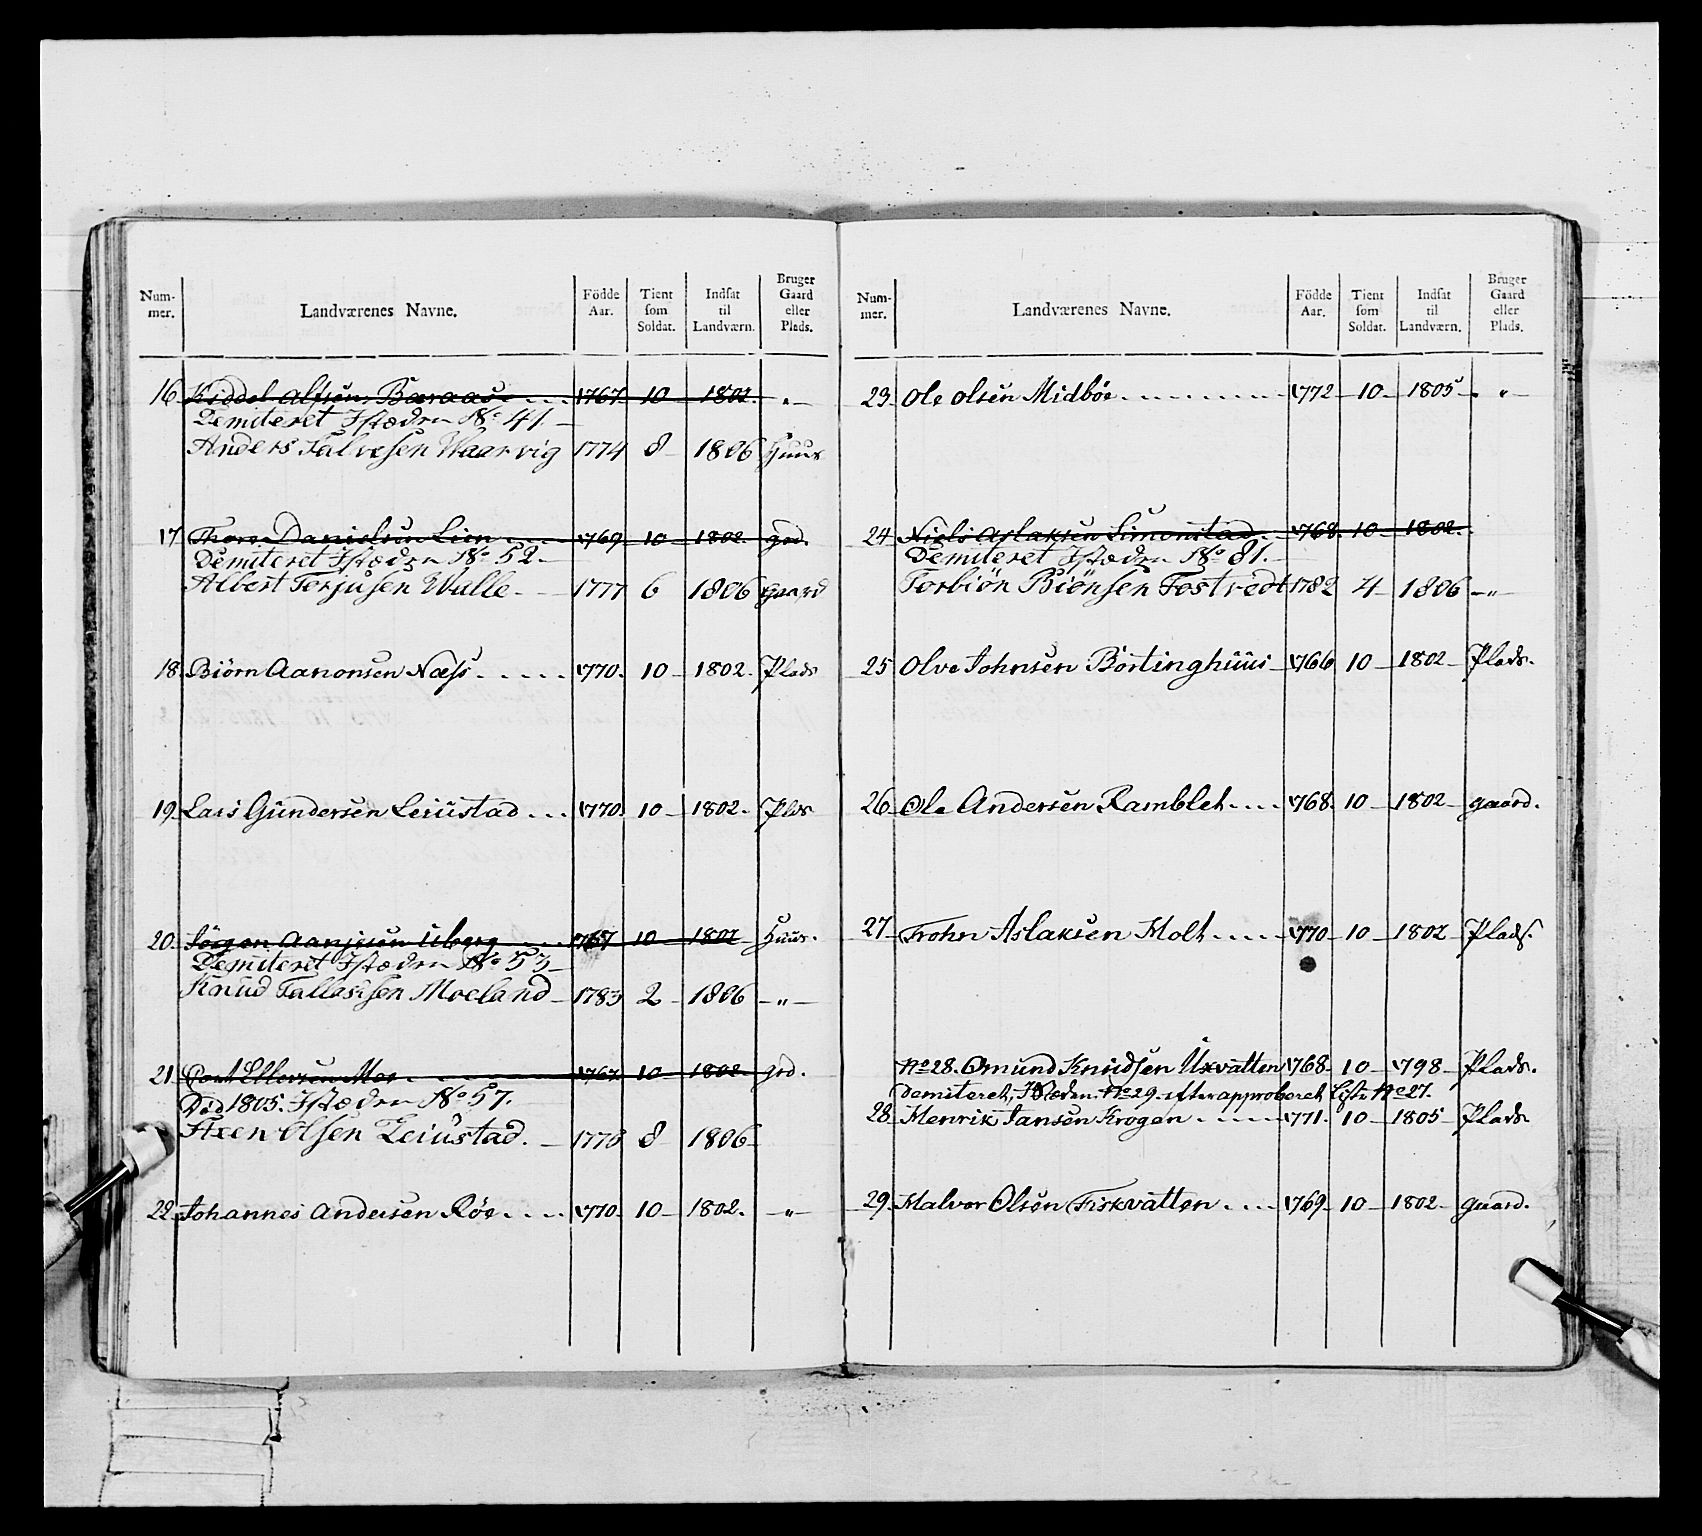 Num-mer. Landværenes Navne. Födde Aar. Tient som Soldat. Indsat til Landværn. Bruger Gaard eller Plads.
16 Kiddel Alfsen Baraas 1767 10 1802. "
Demiteret Istæden No 41.
Anders Salvesen Waarvig 1774 8 1806 Huus
17 Thore Danielsen Lien 1769 10 1802. grd.
Demiteret Istæden No 52.
Albert Terjusen Walle 1777 6 1806 gaard
18. Biörn Aanonsen Næss 1770. 10 1802. Plads
19. Lars Gundersen Leiüstad 1770. 10 1802. Plds
20. Jörgen 1767 10 1802 Huus.
Demiteret Istæden No 53
Knud Tallaksen Moeland 1783 2 1806 "
21. Moe 1767 10 1802. grd.
Död 1805. Istæden No 57.
Axen Olsen Leiüstad. 1776 8 1806
22. Johannes Andersen Röe 1770. 10 1802. "
Num-mer. Landværenes Navne. Födde Aar. Tient som Soldat. Indsat til Landværn. Bruger Gaard eller Plads.
23. Ole Olsen Midböe 1772 10 1805 "
24 Niels Aslaksen Simonstad 1768. 10 1802.
Demiteret Istæden No 81.
Torbiön Biönsen Fostvedt 1782 4 1806 "
25 Olve Johnsen Börtinghüüs 1766 10 1802 Plads.
26. Ole Andersen Ramblet 1768. 10 1802 gaard.
27. Frohn Aslaksen Holt 1770 10 1802 Plads.
No 28. Omund Knudsen Uxvatten 1768. 10 1798 Plads.
demiteret, Istæden No 29. efter approberet Liste No 27.
28. Henrik Jansen Krogen 1771. 10 1805 Plads
29. Halvor Olsen Fiskvatten 1769 10 1802 gaard.